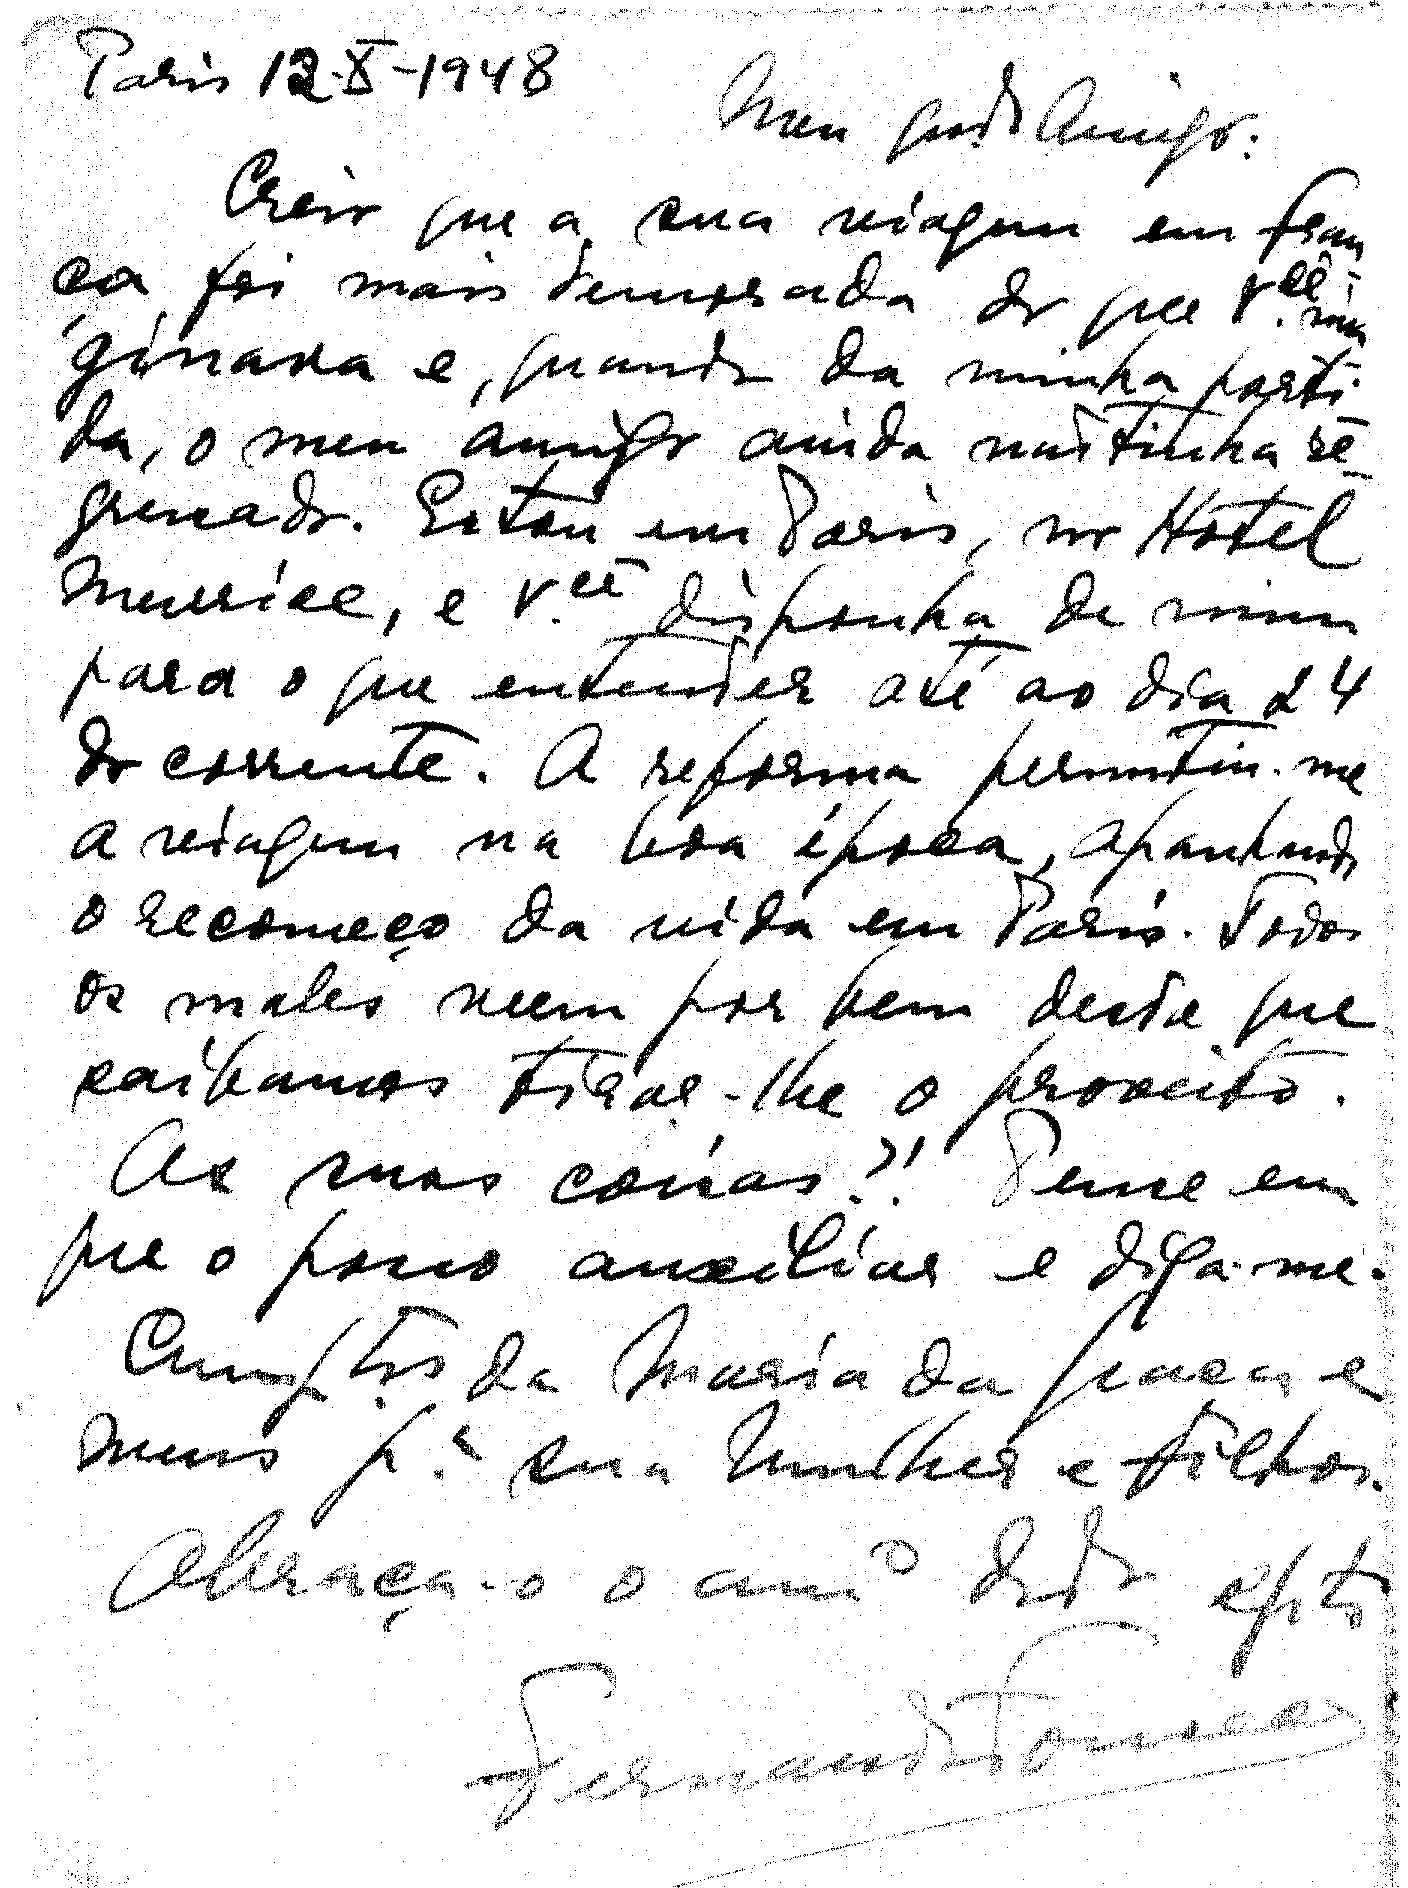 Paris 12-X-1948
Meu grde Amigo:
Creio que a sua viagem em Fran
ça foi mais demorada do que V.cê ima
ginava e, quando da minha parti-
da, o meu amigo ainda não tinha re-
gressado. Estou em Paris, no Hotel
Meurice, e V.cê disponha de mim
para o que entender até ao dia 24
do corrente. A reforma permitiu-me
a viagem na boa época, apanhando
o recomeço da vida em Paris. Todos
os males veem por bem desde que
saibamos tirar-lhe o proveito.
As suas coisas?! Pense em
que o posso auxiliar e diga-me.
Cumptos da Maria da Graça e
meus p.ª sua Mulher e Filhos.
Abraça-o o amº dedº
Fernando Fonseca